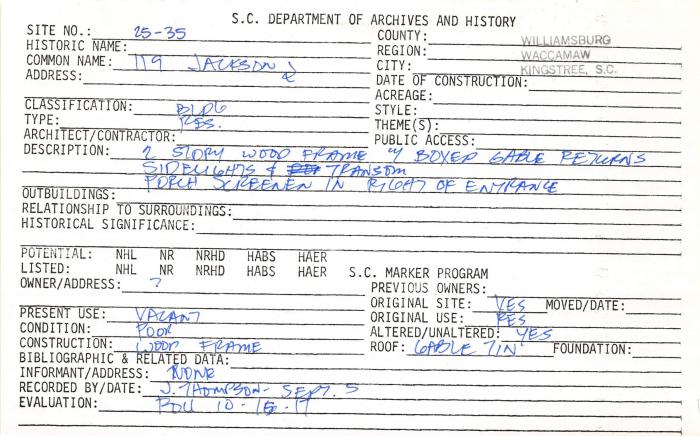 S.C. DEPARTMENT OF ARCHIVES AND HISTORY
SITE NO.: 25-35 COUNTY: WILLIAMSBURG
HISTORIC NAME: REGION: WACCAMAW
COMMON NAME: 119 JACKSON CITY: KINGSTREE, S.C.
ADDRESS: DATE OF CONSTRUCTION:
ACREAGE:
CLASSIFICATION: BLDG STYLE:
TYPE: RES. THEME(S):
ARCHITECT/CONTRACTOR: PUBLIC ACCESS:
DESCRIPTION: 2 STORY WOOD FRAME W/ BOXED GABLE RETURNS
SIDELIGHTS & TRANSOM
PORCH SCREENEN IN RIGHT OF ENTRANCE
OUTBUILDINGS:
RELATIONSHIP TO SURROUNDINGS:
HISTORICAL SIGNIFICANCE:
POTENTIAL: NHL NR NRHD HABS HAER
LISTED: NHL NR NRHD HABS HAER S.C. MARKER PROGRAM
OWNER/ADDRESS: ? PREVIOUS OWNERS:
ORIGINAL SITE: YES MOVED/DATE:
PRESENT USE: VACANT ORIGINAL USE: RES
CONDITION: POOR ALTERED/UNALTERED: YES
CONSTRUCTION: WOOD FRAME ROOF: GABLE TIN FOUNDATION:
BIBLIOGRAPHIC & RELATED DATA:
INFORMANT/ADDRESS: NONE
RECORDED BY/DATE: J. THOMPSON- SEPT. 5
EVALUATION: ROLL 10 -